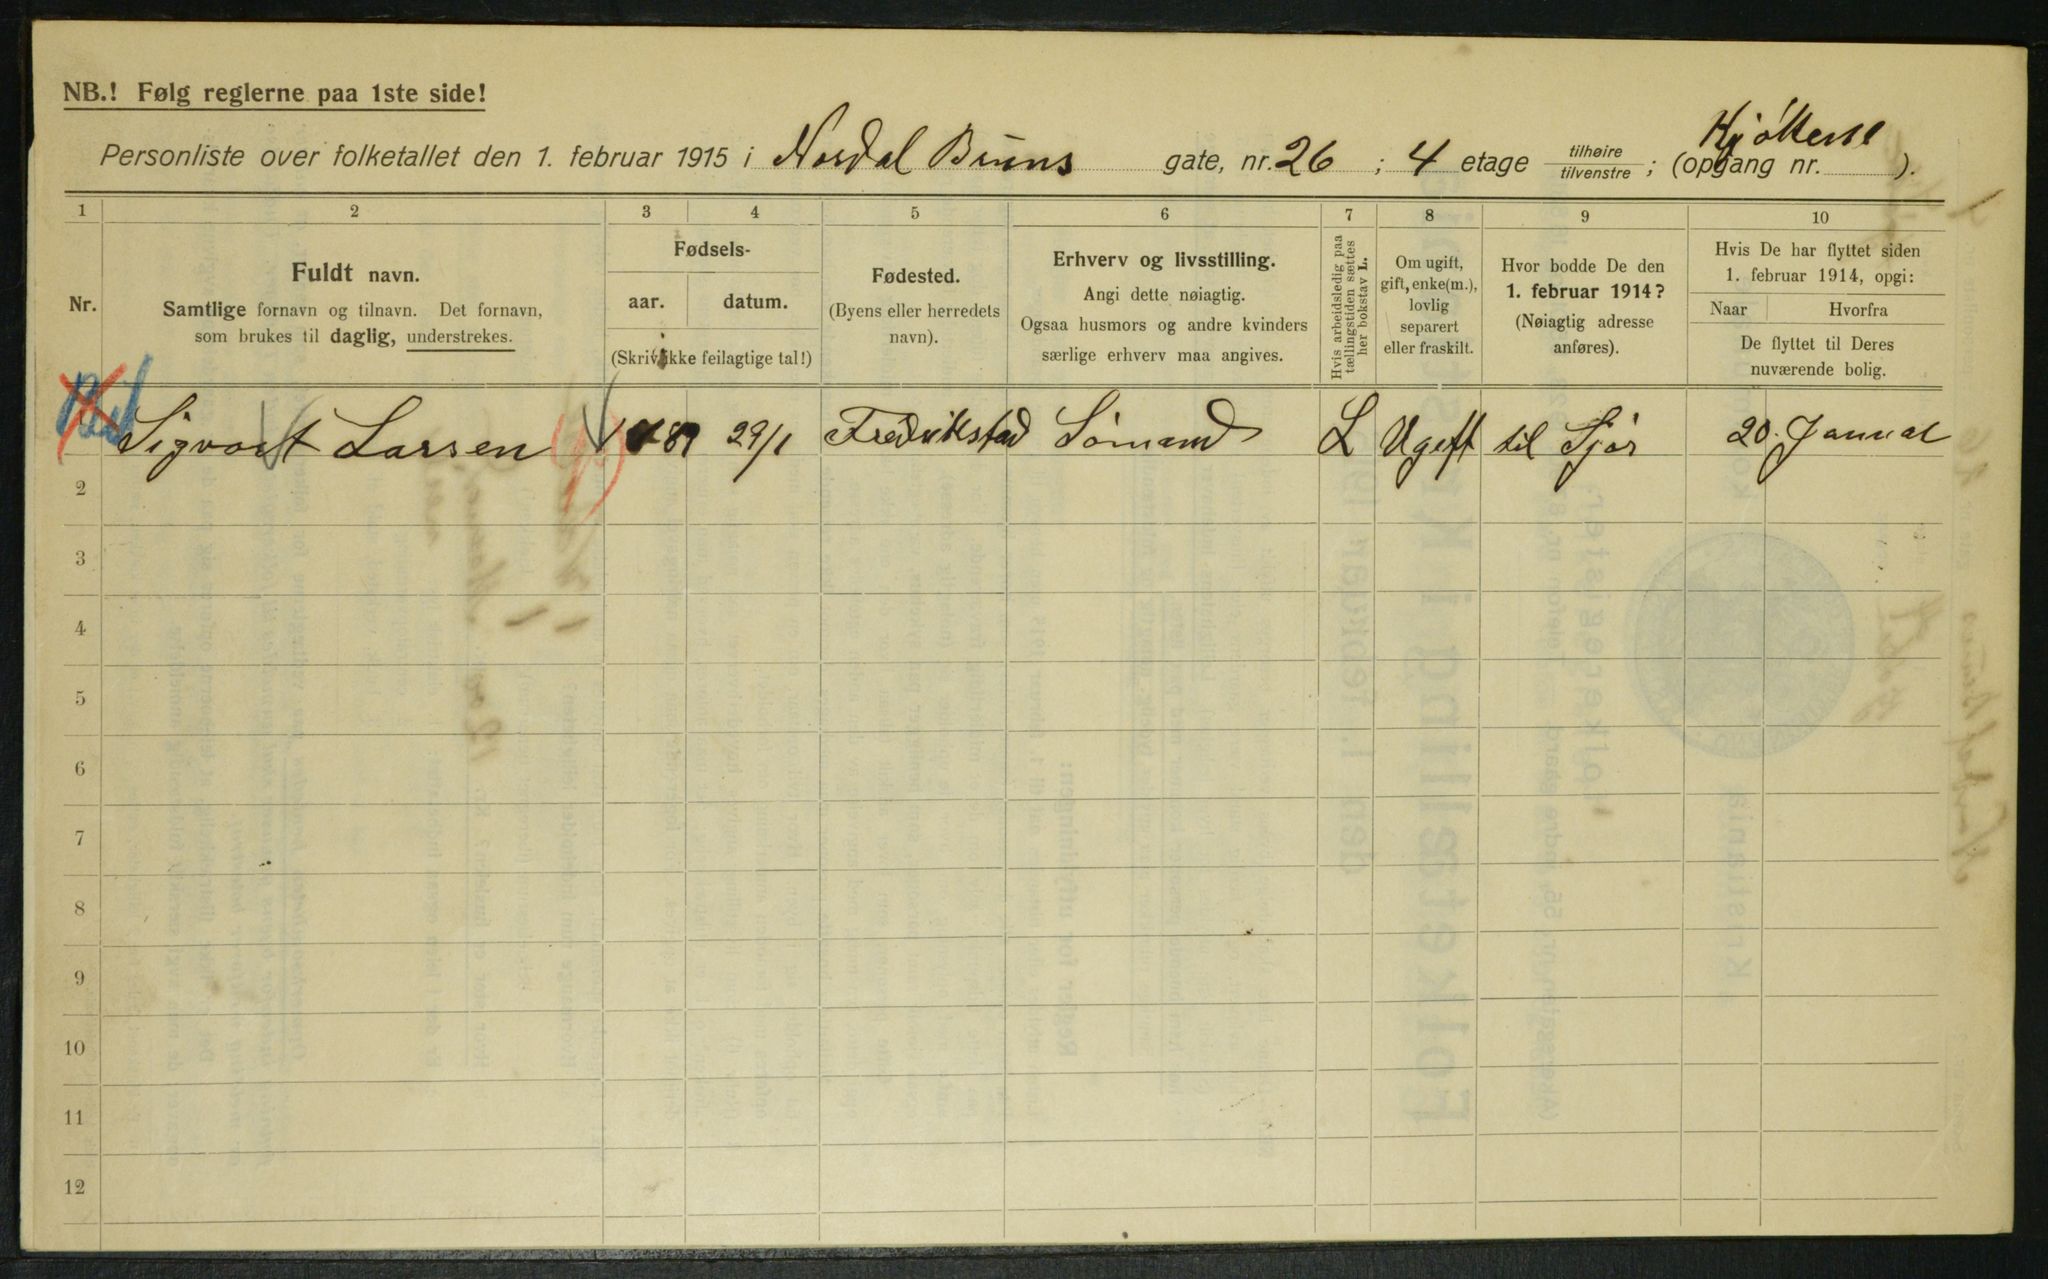 NB.! Følg reglerne paa 1ste side!
Personliste over folketallet den 1. februar 1915 i Nordal Bruns gate, nr. 26 ; 4 etage tilhøire tilvenstre ; (opgang nr. ).
1 2 3 4 5 6 7 8 9 10
Nr.
Fuldt navn.
Samtlige fornavn og tilnavn. Det fornavn,
som brukes til daglig, understrekes.
Fødsels-
aar. datum.
(Skriv ikke feilagtige tal!)
Fødested.
(Byens eller herredets
navn).
Erhverv og livsstilling.
Angi dette nøiagtig.
Ogsaa husmors og andre kvinders
særlige erhverv maa angives.
Hvis arbeidsledig paa
tællingstiden sættes
her bokstav L.
Om ugift,
gift, enke(m.),
lovlig
separert
eller fraskilt.
Hvor bodde De den
1. februar 1914?
(Nøiagtig adresse
anføres).
Hvis De har flyttet siden
1. februar 1914, opgi:
Naar Hvorfra
De flyttet til Deres
nuværende bolig.
Sigvart Larsen 89 29/1 Fredrikstad Sømand L Ugift til Sjøs 20. Januar
2
3
4
5
6
7
8
9
10
11
12